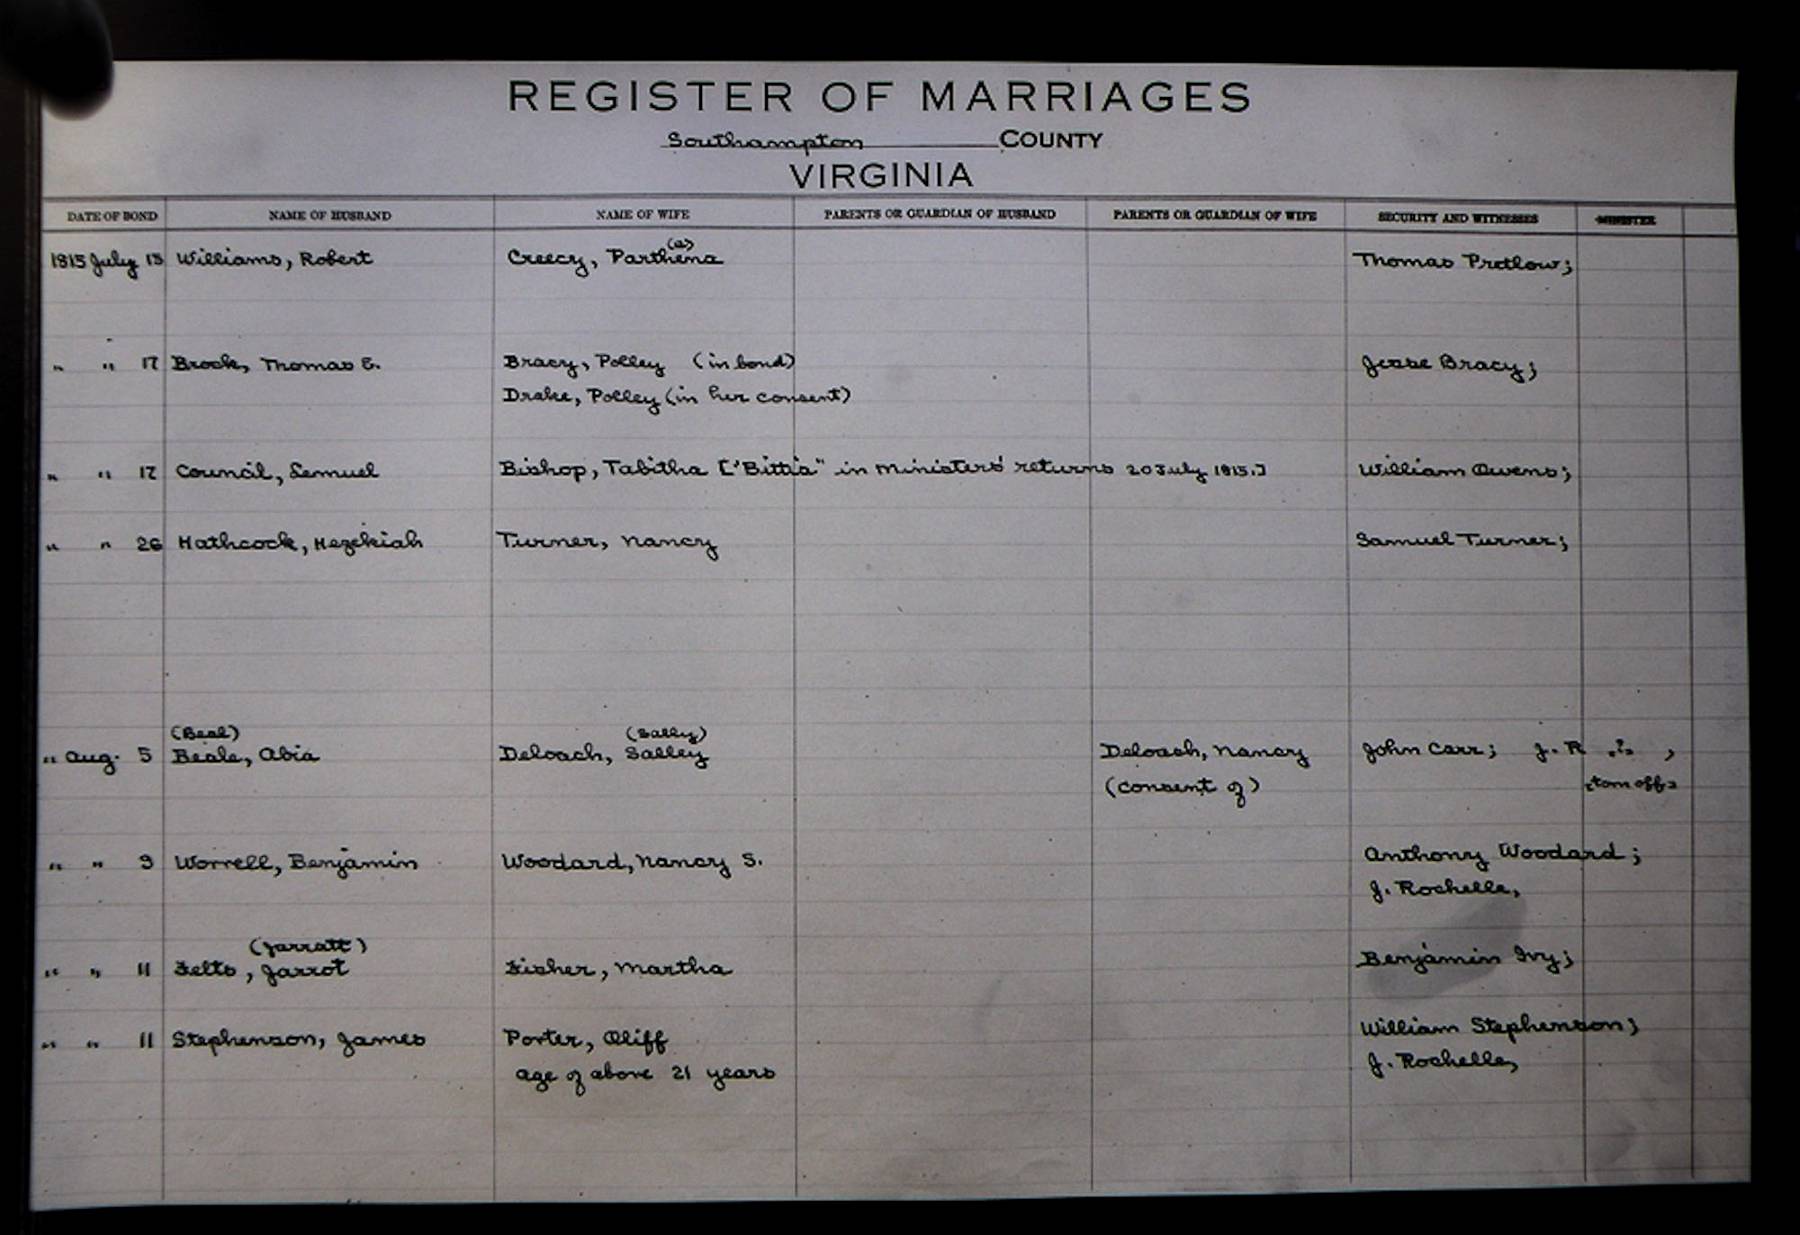 REGISTER OF MARRIAGES
Southampton COUNTY
VIRGINIA
DATE OF BOND NAME OF HUSBAND NAME OF WIFE PARENTS OR GUARDIAN OF HUSBAND PARENTS OR GUARDIAN OF WIFE SECURITY AND WITNESSES MINISTER
(e)
1815 July 13 Williams, Robert Creecy, Parthena Thomas Pretlow;
" " 17 Brock, Thomas E. Bracy, Polley (in bond) Jesse Bracy;
Drake, Polley (in her consent)
" " 17 Council, Lemuel Bishop, Tabitha ["Bittia" in ministers' returns 20 July 1815.] William Owens;
" " 26 Hathcock, Hezekiah Turner, Nancy Samuel Turner;
(Beal) (Sally)
" Aug. 5 Beale, Abia Deloach, Salley Deloach, Nancy John Carr; J. R .?. ,
(consent of) <torn off>
" " 9 Worrell, Benjamin Woodard, Nancy S. Anthony Woodard;
J. Rochelle,
(Jarratt)
" " 11 Felts, Jarrot Fisher, Martha Benjamin Ivy;
" " 11 Stephenson, James Porter, Oliff William Stephenson;
age of above 21 years J. Rochelle,